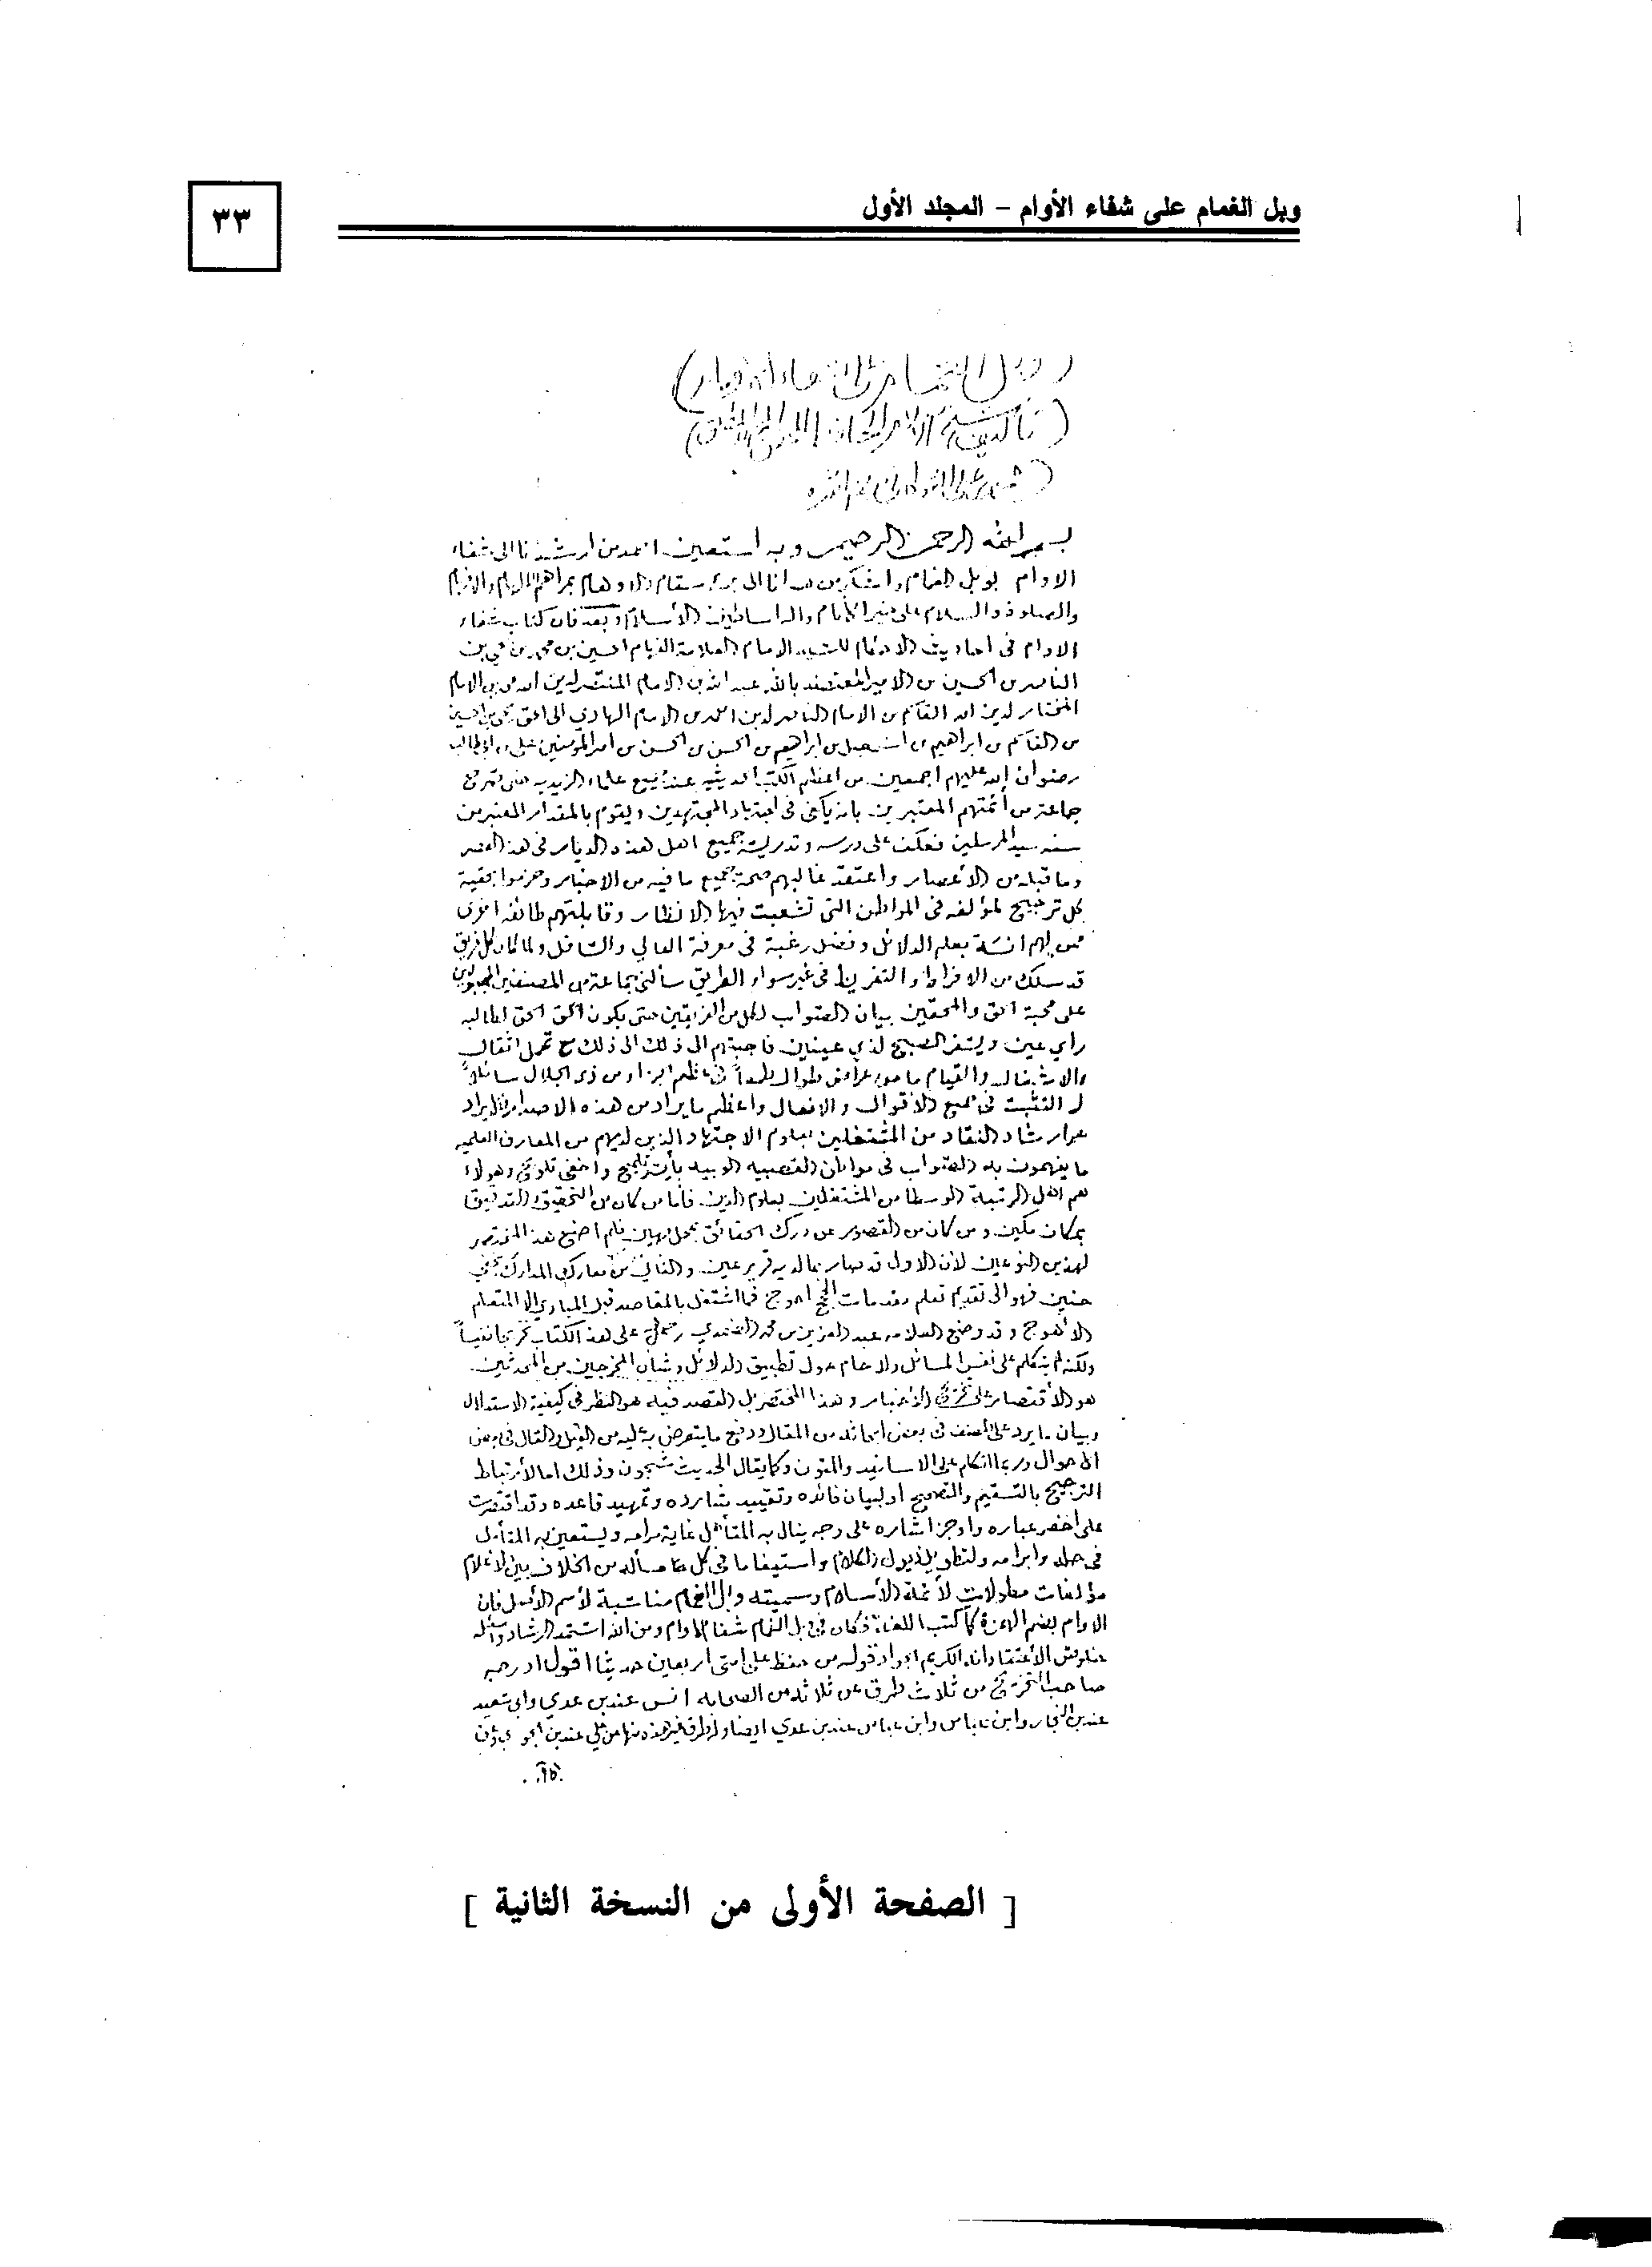 وبل الغمام على شفاء الأوام - المجلد الأول
٣٣
بسم الله الرحمن الرحيم وبه استعين احمد من ارشدنا الى شفاء
الاوام بوبل الغمام واشكر من هدانا الى
والصلوة والسلام على خير الأنام واله اساطين الأسلام وبعد فان كتاب شفاء
الاوام فى احاديث الاحكام للسيد الامام العلامة الحسين بن محمد بن
الناصر بن الحسين بن الامير المعتضد بالله عبد الله بن الامام المنتصر لدين الله محمد بن الامام
المختار لدين الله القاسم بن الامام الناصر لدين الله احمد بن الامام الهادي الى الحق يحيى بن الحسين
بن القاسم بن ابراهيم بن اسمعيل بن ابراهيم بن الحسن بن الحسن بن امير المؤمنين على بن ابى طالب
رضوان الله عليهم اجمعين من اعظم الكتب الحديثيه عند جميع علماء الزيديه حتى
جماعة من أئمتهم المعتبرين بانه يكفى فى اجتهاد المجتهدين ويقوم بالمقدار المعتبر من
سنة سيد المرسلين فعكف على درسه وتدريسه جميع اهل هذه الديار فى هذا العصر
وما قبله من الأعصار واعتقد غالبهم صحة جميع ما فيه من الاخبار وجزموا بحقية
كل ترجيح لمؤلفه فى المواطن التى تشعبت فيها الانظار وقابلتهم طائفه اخرى
ممن لهم انسة بعلم الدلائل وفضل رغبة فى معرفة العالي والسافل ولما كان كل فريق
قد سلك من الافراط والتفريط فى غير سواء الطريق سألنى جماعة من المصنفين المجبولين
على محبة الحق والمحقين بيان الصواب لكل من الفريقين حتى يكون الحق الحق لطالبه
رأي عين ويسفر الصبح لذي عينين فاجبتهم الى ذلك الى ذلك مع تحمل اثقال
والاشتغال والقيام طمعاً فى عظيم الجزاء من ذى الجلال سائلاً
له التثبت فى جميع الاقوال والافعال واعظم ما يراد من هذه الاصدار والايراد
هو ارشاد النقاد من المشتغلين بعلوم الاجتهاد الذين لديهم من المعارف العلميه
ما يفهمون به الصواب فى مواطن العصبيه الوبيه بأيسر تلميح واخفى تلويح وهولاء
هم اهل الرتبة الوسطا من المشتغلين بعلوم الدين فأما من كان من التحقيق والتدقيق
بمكان مكين ومن كان من القصور عن درك الحقائق بمحل مهين فلم اضع هذا المختصر
لهذين النوعين لأن الاول قد صار بما لديه قرير عين والثانى من معارك المدارك بخفي
حنين فهو الى تقديم تعلم مقدمات الحجج احوج فما اشتغل بالمقاصد قبل المبادي الا المتعلم
الأهوج وقد وضع العلامه عبد العزيز بن محمد على هذا الكتاب تخريجا نفيساً
ولكنه لم يتكلم على نفس المسائل ولا حام حول تطبيق الدلائل وشان المخرجين من المحدثين
هو الأقتصار على تخريج الأخبار وهذا المختصر بل القصد فيه هو النظر فى كيفية الاستدلال
وبيان ما يرد على المصنف فى بعض ابحاثه من المقال ودفع ما يتعرض به عليه من القيل والقال فى بعض
الاحوال وربما اتكلم على الاسانيد والمتون وكما يقال الحديث شجون وذلك اما لأرتباط
الترجيح بالتسقيم والتصحيح او لبيان فائده وتقييد شارده وتمهيد قاعده وقد اقتصرت
على اخصر عباره واوجز اشاره على وجه ينال به المتأهل غاية مرامه ويستعين به المتأمل
فى حله وابرامه ولتطويل ذيول الكلام واستيفا ما فى كل مسألة من الخلاف بين الاعلام
مؤلفات مطولات لأئمة الأسلام وسميته وبل الغمام مناسبة لأسم الأصل فان
الاوام بضم الهمزة كما كتب اللغة فكان فى وبل الغمام شفاء الاوام ومن الله استمد الرشاد واسئله
خلوص الأعتقاد انه الكريم الجواد قوله من حفظ على امتى اربعين حديثا اقول اورده
صاحب التخريج من ثلاث طرق عن ثلاثة من الصحابه انس عند بن عدي وابى سعيد
عند بن النجار وابن عباس وابن عباس عند بن عدي ايضا وله طرق غير هذه منها عن علي عند بن الجوزي
[ الصفحة الأولى من النسخة الثانية ]